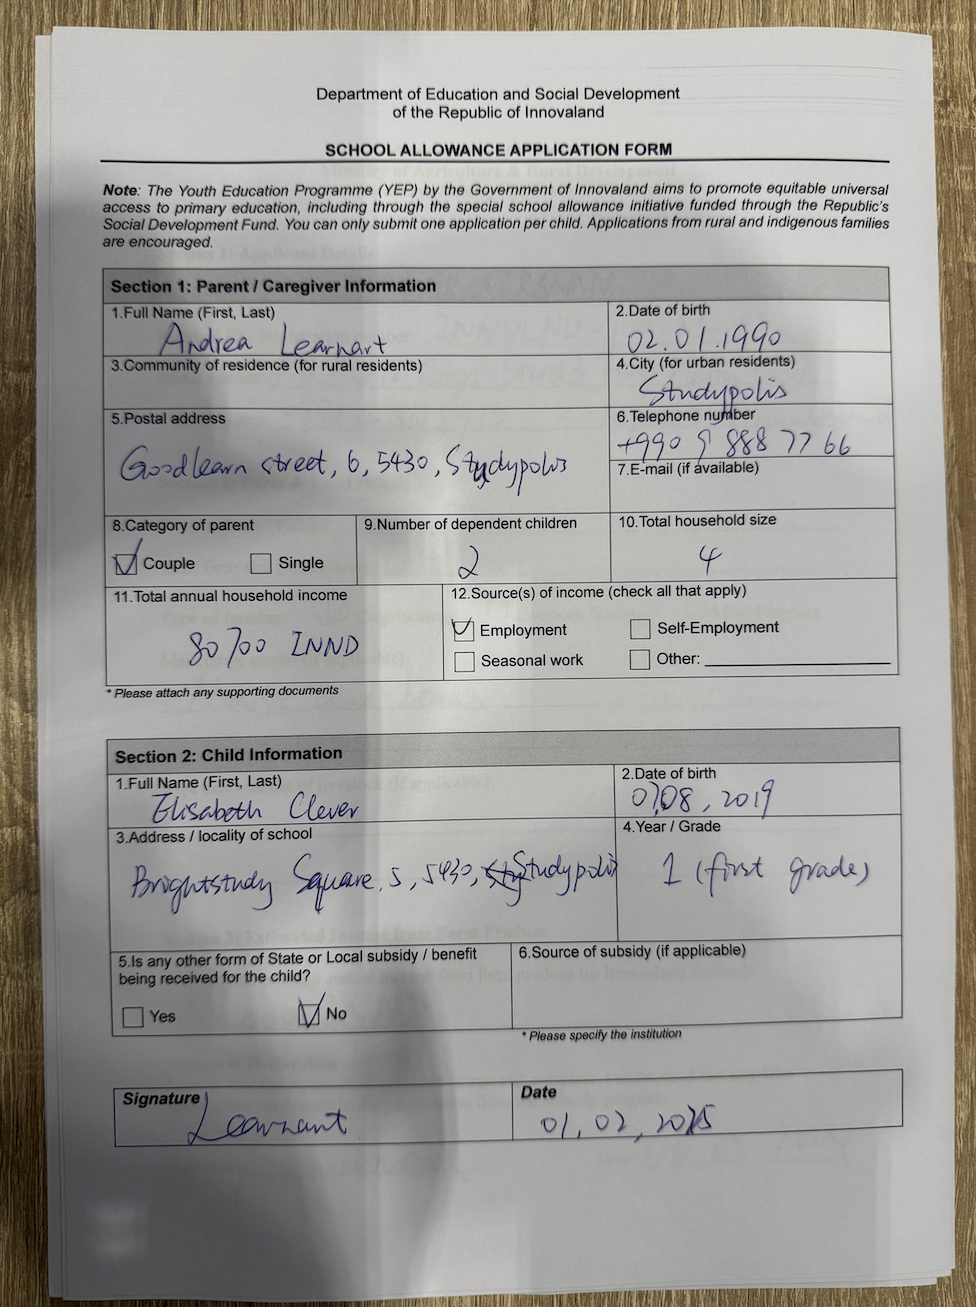 Department of Education and Social Development
of the Republic of Innovaland
SCHOOL ALLOWANCE APPLICATION FORM
Note: The Youth Education Programme (YEP) by the Government of Innovaland aims to promote equitable universal
access to primary education, including through the special school allowance initiative funded through the Republic's
Social Development Fund. You can only submit one application per child. Applications from rural and indigenous families
are encouraged.
Section 1: Parent / Caregiver Information
1.Full Name (First, Last)
Andrea Learnart
2.Date of birth
02.01.1990
3.Community of residence (for rural residents)
4.City (for urban residents)
Studypolis
5.Postal address
Goodlearn street, 6, 5430, Studypolis
6.Telephone number
+990 9 888 77 66
7.E-mail (if available)
8.Category of parent
Couple
Single
9.Number of dependent children
2
10.Total household size
4
11.Total annual household income
80700 INND
12.Source(s) of income (check all that apply)
Employment
Self-Employment
Seasonal work
Other:
* Please attach any supporting documents
Section 2: Child Information
1.Full Name (First, Last)
Elisabeth Clever
2.Date of birth
07.08, 2019
3.Address / locality of school
Brightstudy Square, 5, 5430, Studypolis
4.Year / Grade
1 (first grade)
5.Is any other form of State or Local subsidy / benefit
being received for the child?
Yes
No
6.Source of subsidy (if applicable)
* Please specify the institution
Signature
Learnart
Date
01, 02, 2025